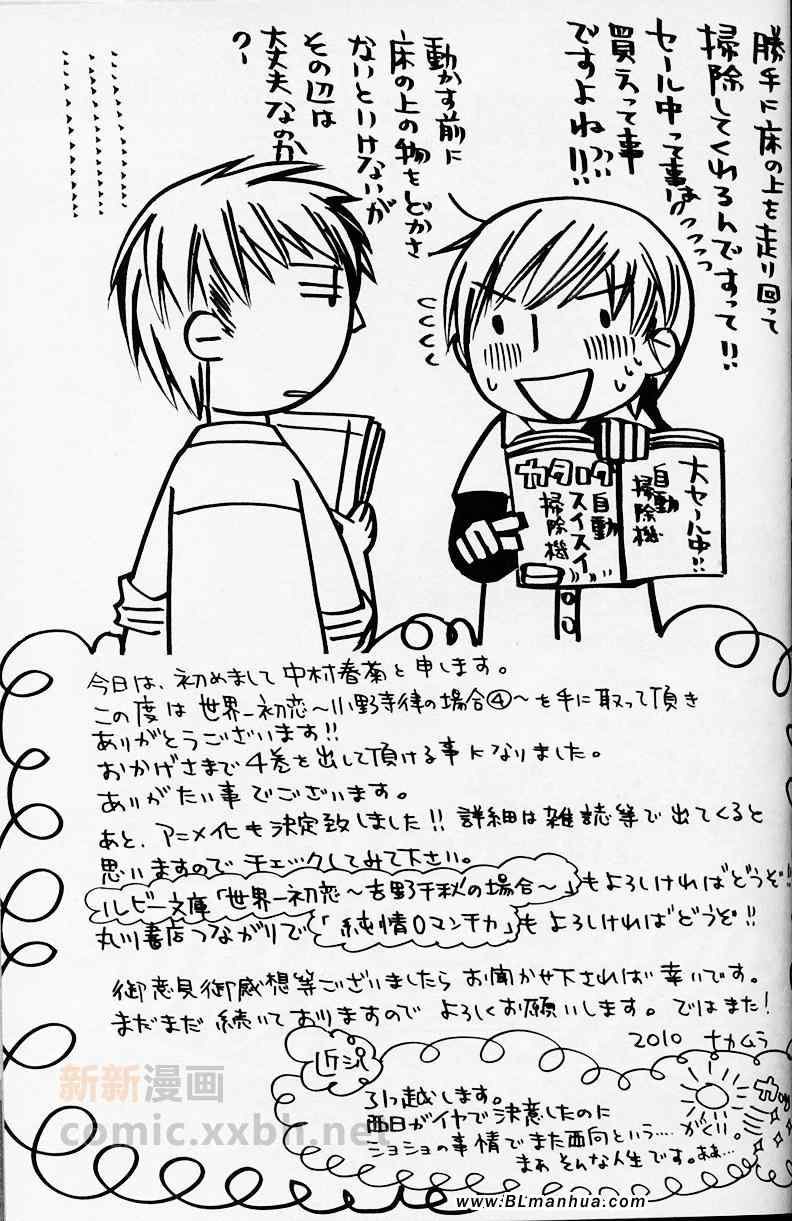 勝手に床の上を走り回って
掃除してくれるんですって!!
セール中って事はっっっ
買えって事
ですよねっっ!!
動かす前に
床の上の物をどかさ
ないといけないが
その辺は
大丈夫なのか
?
カタログ
自動
スイスイ
掃除機
大セール中!!
自動
掃除機
今日は、初めまして中村春菊と申します。
この度は 世界一初恋～小野寺律の場合④～を手に取って頂き
ありがとうございます!!
おかげさまで4巻を出して頂ける事になりました。
ありがたい事でございます。
あと、アニメ化も決定致しました!! 詳細は雑誌等で出てくると
思いますので チェックしてみて下さい。
ルビー文庫「世界一初恋～吉野千秋の場合～」もよろしければどうぞ!!
丸川書店つながりで「純情ロマンチカ」も よろしければどうぞ!!
御意見御感想等ございましたら お聞かせ下されば幸いです。
まだまだ 続いておりますので よろしくお願いします。ではまた!
2010 ナカムラ
近況
引っ越します。
西日がイヤで決意したのに
ショショの事情でまた西向という…. がくり。
まぁ そんな人生です。ああ…
新新漫画
comic.xxbh.net
www.BLmanhua.com